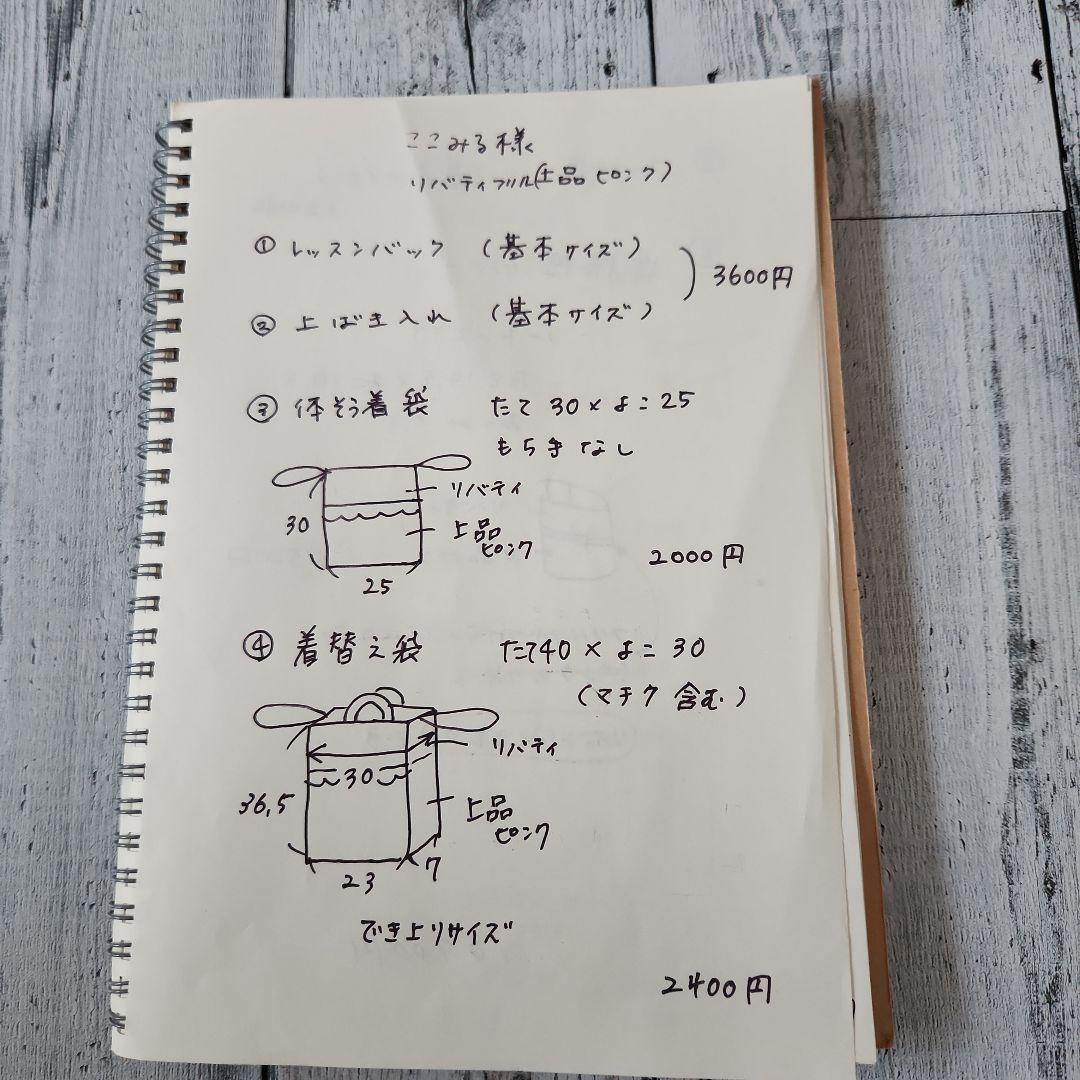 ここみる様
リバティフリル(上品ピンク)
① レッスンバック (基本サイズ)
3600円
② 上ばき入れ (基本サイズ)
③ 体そう着袋 たて30×よこ25
もちきなし
リバティ
30
上品
ピンク
25
2000円
④ 着替え袋 たて40×よこ30
(マチ7含む)
リバティ
30
36,5
上品
ピンク
7
23
でき上りサイズ
2400円